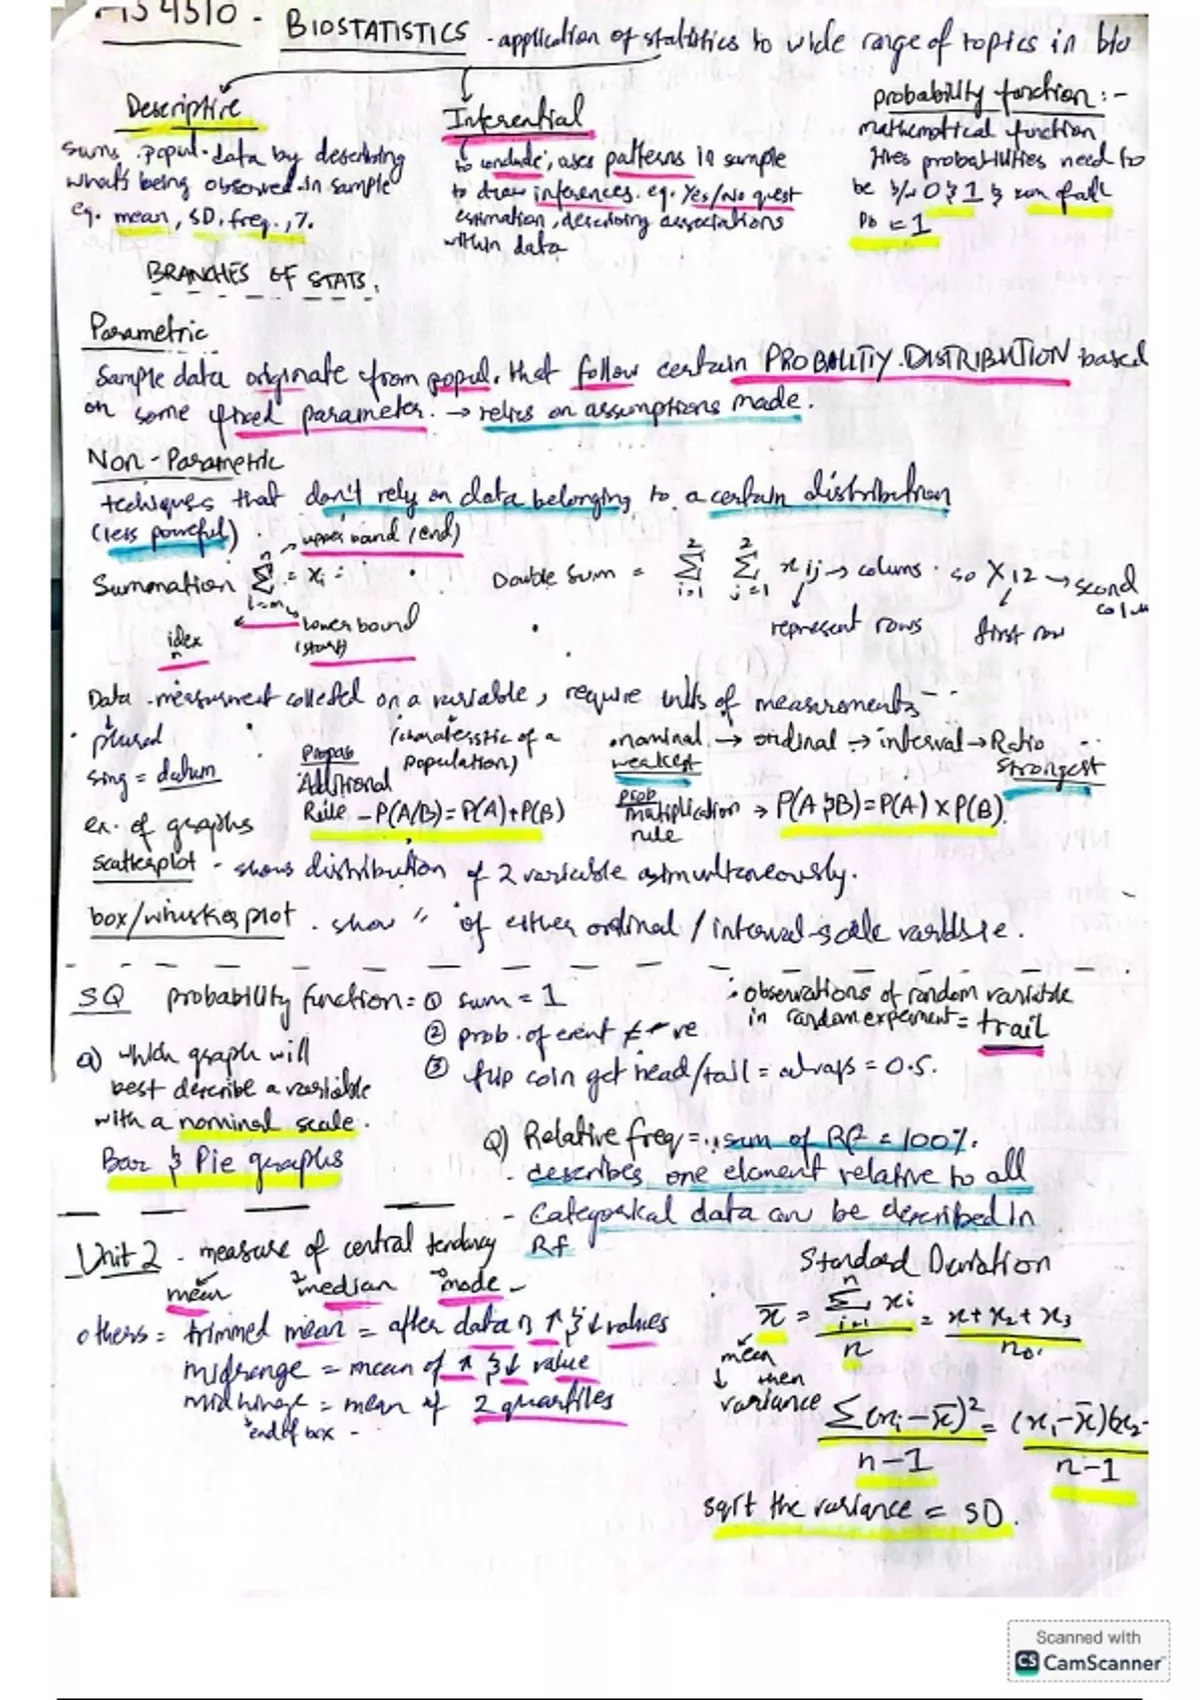 4510 - BIOSTATISTICS - application of statistics to wide range of topics in bio
Descriptive
sums. popul. data by describing
what's being observed in sample
eg. mean, SD, freq., %.
Inferential
to conclude, uses patterns in sample
to draw inferences. eg. Yes/No quest
estimation, describing associations
within data
probability function :-
mathematical function
probabilities need to
be b/w 0 & 1 & sum of all
Pb = 1
BRANCHES OF STATS.
Parametric
Sample data originate from popul. that follow certain PROBALITIY.DISTRIBUTION based
on some fixed parameter. → relies on assumptions made.
Non-Parametric
techiques that don't rely on data belonging to a certain distribution
(less powerful)
upper bound (end)
Summation n Σ = xi
i=m
lower bound
(start)
idex
Double Sum = 2 Σ i=1 2 Σ j=1 x ij → colums. so X12 → second
represent rows first row
Data - measurment collected on a variable, require units of measurements
plural
sing = datum
(charateristic of a
population)
nominal → ordinal → interval → Ratio
weakest strongest
Additional
Rule - P(A/B) = P(A)+P(B)
prob
multiplication → P(A & B) = P(A) x P(B).
rule
ex. of graphs
scatterplot - shows distribution of 2 variable
box/whisker plot - show " of either ordinal / interval-scale variable.
SQ probability function = ① sum = 1
② prob. of event ≠ -ve
③ flip coin get head/tail = always = 0.5.
observations of random variable
in random experiment = trail
a) which graph will
best describe a variable
with a nominal scale.
Bar & Pie graphs
Q) Relative freq = sum of RF = 100%.
- describes one element relative to all
- Categorical data can be described in
RF
Unit 2 - measure of central tendancy
mean median mode
others = trimmed mean = after data ↑ & ↓ values
midrange = mean of ↑ & ↓ value
midhinge = mean of 2 quartiles
end of box
Standard Deviation
x̄ = n Σ i=1 xi / n = x+x2+x3 / no.
mean
↓ then
variance Σ(xi-x̄)² / n-1 = (x1-x̄)(x2- / n-1
sqrt the variance = SD.
Scanned with
CS CamScanner